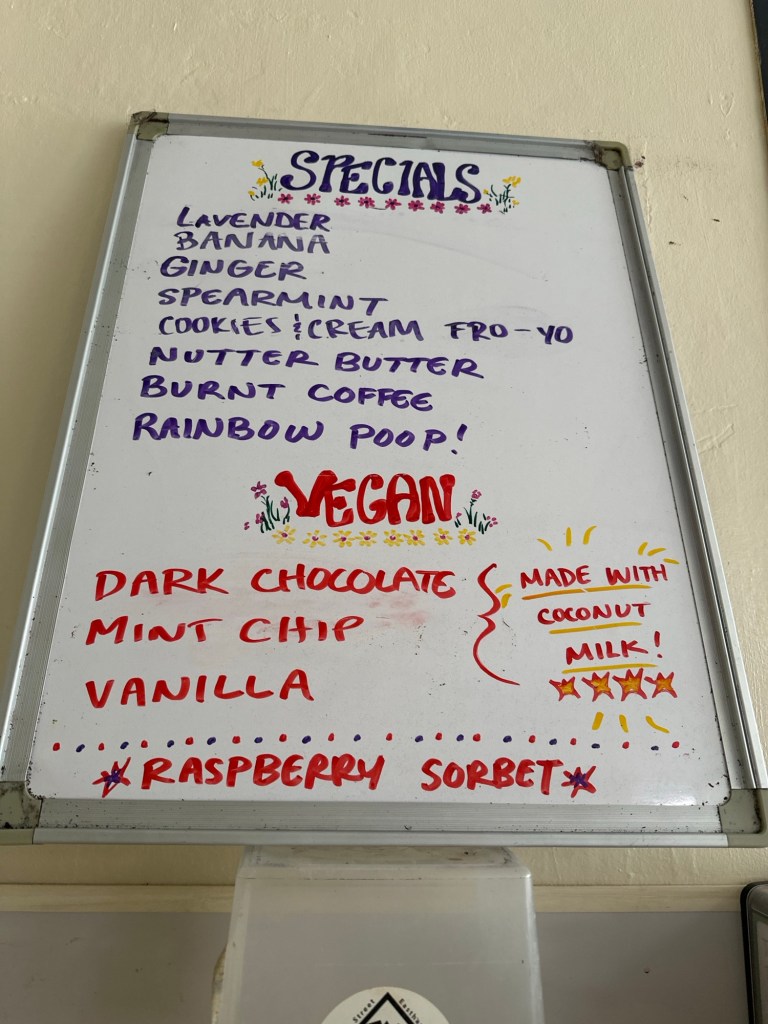 SPECIALS
LAVENDER
BANANA
GINGER
SPEARMINT
COOKIES & CREAM FRO-YO
NUTTER BUTTER
BURNT COFFEE
RAINBOW POOP!
VEGAN
DARK CHOCOLATE
MINT CHIP
VANILLA
MADE WITH
COCONUT
MILK!
RASPBERRY SORBET
Street